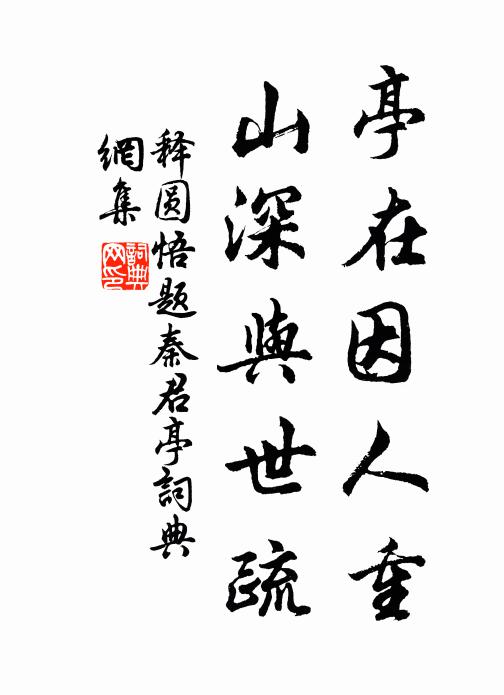 亭在因人重
山深與世疏
释圆悟题秦君亭詞典
網集
詞典
网印